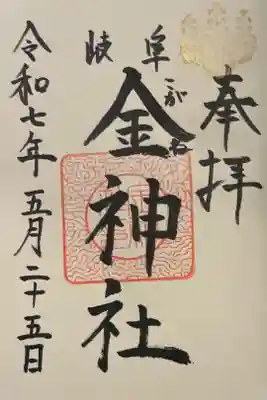 奉拝
岐阜
金神社
こがね
令和七年五月二十五日